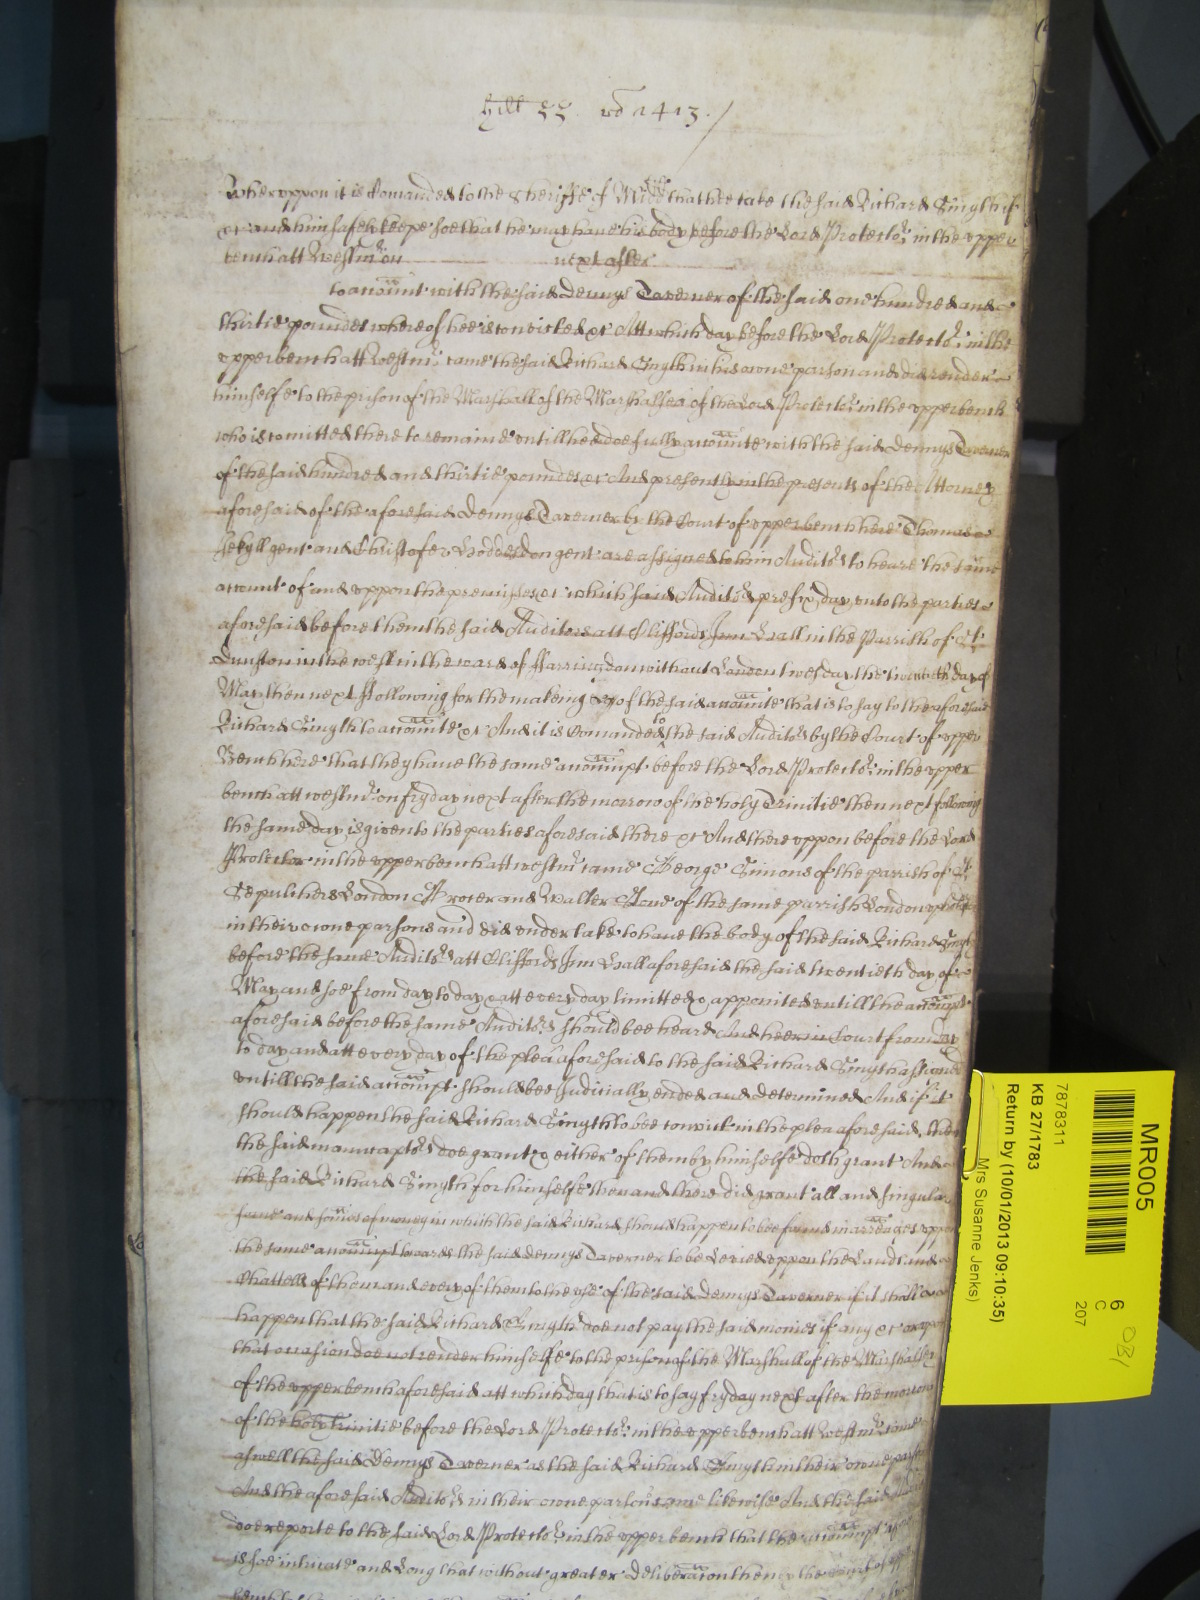 hill 55 ro 1413./
Whereuppon it is Comanded to the Sheriffe of Midd that hee take the said Richard Smyth if
&c and him safely keepe soe that he may have his body before the Lord Protector in the upper
bench att Westmr on next after
to accounte with the said Dennys Taverner of the said one hundred and
thirtie poundes whereof hee is convicted &c Att which day before the Lord Protector in the
upper bench att Westmr came the said Richard Smyth in his owne parson and did render
himselfe to the prison of the Marshall of the Marshalsea of the Lord Protector in the upper bench
who is comitted there to remaine untill hee doe fully accounte with the said Dennys Taverner
of the said hundred and thirtie poundes &c And presently in the presents of the Attorney
aforesaid of the aforesaid Dennys Taverner by the Court of upper bench here Thomas
Jekyll gent and Christofer Goddesdon gent are assigned to him Auditors to heare the same
account of and uppon the premisses &c which said Auditors prefix day unto the parties
aforesaid before them the said Auditors att Cliffords Inn Hall in the Parrish of St
Dunston in the west in the ward of Farringdon without London twesday the twentieth day of
May then next following for the makeing of the said accounte that is to say to the aforesaid
Richard Smyth to accounte &c And it is Comanded to the said Auditors by the Court of upper
Bench here that they have the same accompt before the Lord Protector in the upper
bench att westmr on fryday next after the morrow of the holy Trinitie then next following
the same day is given to the parties aforesaid there &c And thereuppon before the Lord
Protector in the upper bench att westmr came George Simons of the parrish of St
Sepulchers London Grocer and Walter of the same parrish London
in their owne parsons and did undertake to have the body of the said Richard Smyth
before the same Auditors att Cliffords Inn Hall aforesaid the said twentieth day of
May and soe from day to day & att every day limitted & appointed untill the accompt
aforesaid before the same Auditors should bee heard And here in Court from day
to day and att every day of the plea aforesaid to the said Richard Smyth assigned
untill the said accompt should bee Juditially ended and determined And if it
should happen the said Richard Smyth to bee convict in the plea aforesaid then
the said manucaptors doe grant & either of them by himselfe doth grant And
the said Richard Smyth for himselfe then and there did grant all and singular
some and somes of money in which the said Richard should happen to bee found in arreages uppon
the same accompt towards the said dennys Taverner to be Levied uppon the Lands and
Chattells of them and every of them to the use of the said Dennys Taverner if it shall
happen that the said Richard Smyth doe not pay the said monies if any &c or uppon
that occasion doe not render himselfe to the prison of the Marshall of the Marshalsea
of the upper bench aforesaid att which day that is to say fryday next after the morrow
of the holy Trinitie before the Lord Protector in the upper bench att Westmr came
aswell the said Dennys Taverner as the said Richard Smyth in their owne parsons
And the aforesaid Auditors in their owne parsons came likewise And the said Auditors
doe reporte to the said Lord Protector in the upper bench that the accompt
is soe intricate and Long that without greater deliberation then the Court of upper
MR005
6
C
207
081
7878311
KB 27/1783
Return by (10/01/2013 09:10:35)
Mrs Susanne Jenks)